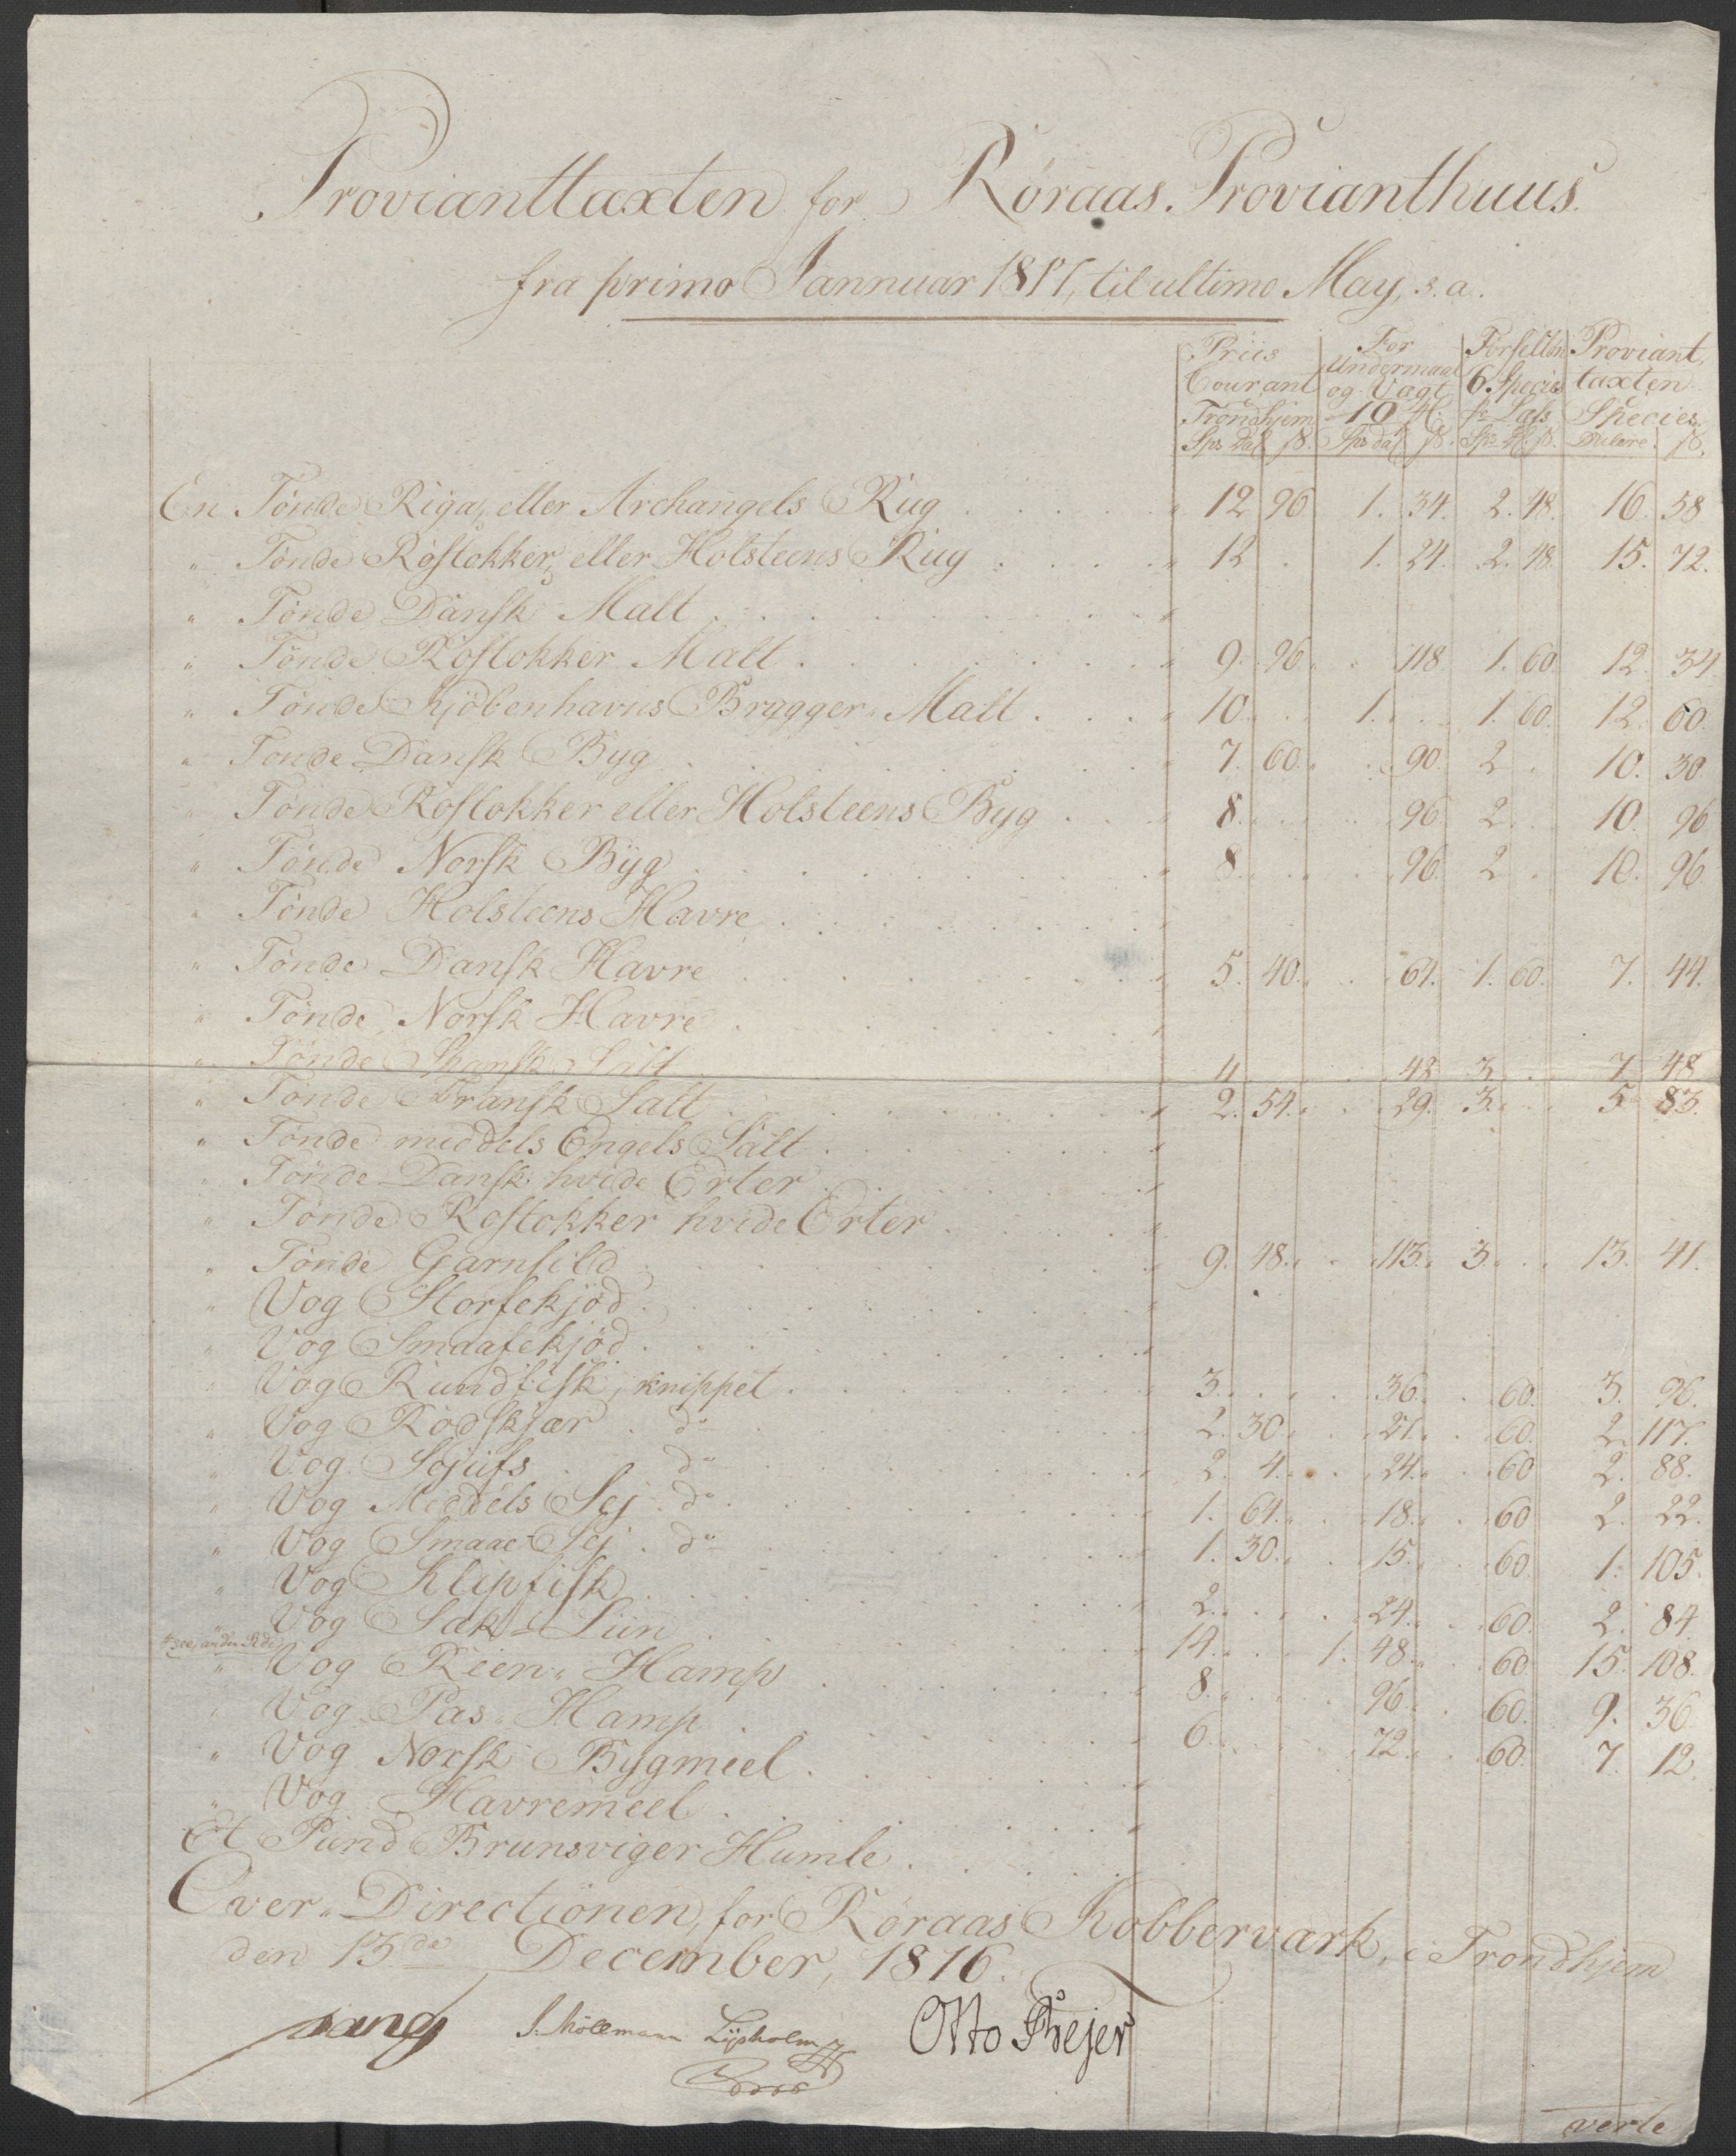 Provianttaxten for Røraas Provianthuus.
fra primo Jannuar 1817, til ultimo May, s. a.
Priis Courant Trondhjem Sps dal ſs.
For Undermaal og Vægt 10 % Sps dal ſs.
Forsellön 6 Species pr Læſs Sps dl ſs.
Proviant, taxten Species Dalere. ſs.
En Tønde Riga, eller Archangels Rug 12 96 1. 34. 2. 48. 16. 58
" Tønde Roſtokker, eller Holsteens Rug 12 1. 24. 2. 48. 15. 72.
" Tønde Danſk Malt
" Tønde Roſtokker Malt 9. 96. 118. 1. 60. 12. 34.
" Tønde Kjöbenhavns Brygger Malt 10. 1. 1. 60. 12. 60.
" Tonde Danſk Byg 7. 60. 90. 2 10. 30
" Tønde Roſtokker eller Holsteens Byg 8. 96 2 10. 96
" Tønde Norſk Byg 8. 96. 2 10. 96.
" Tønde Holsteens Havre
" Tønde Danſk Havre 5. 40. 64. 1. 60. 7. 44.
" Tønde Norſk Havre
" Tønde Spanſk Salt 4 48 3 7 48
" Tønde Franſk Salt 2. 54. 29. 3. 5 83.
" Tønde middels Engels Salt
" Tønde Danſk hvide Erter
" Tønde Roſtokker hvide Erter
" Tønde Garnſild 9. 48. 113. 3. 13. 41.
" Vog Storfekjöd
" Vog Smaafekjöd
" Vog Rundfiſk, knippet 3. 36. 60. 3. 96.
" Vog Rödſkjær do 2. 30. 27. 60. 2. 117.
" Vog Sojufs do 2. 4. 24. 60 2. 88.
" Vog Middels Sej do 1. 64. 18. 60 2. 22.
" Vog Smaae Sej do 1. 30. 15. 60. 1. 105.
" Vog Klipfiſk 2. 24. 60. 2. 84.
" Vog Sæk Liin 14. 1. 48. 60. 15. 108.
see anden Side
" Vog Reen Hamp 8. 96. 60. 9. 36
" Vog Pas Hamp 6. 72. 60. 7. 12.
" Vog Norſk Bygmeel
" Vog Havremeel
Et Pund Brunsviger Humle
Over Directionen, for Røraas Kobberværk, i Trondhjem
den 13de December, 1816.
Lang J. Möllmann Lysholm Otto Bejer
verte